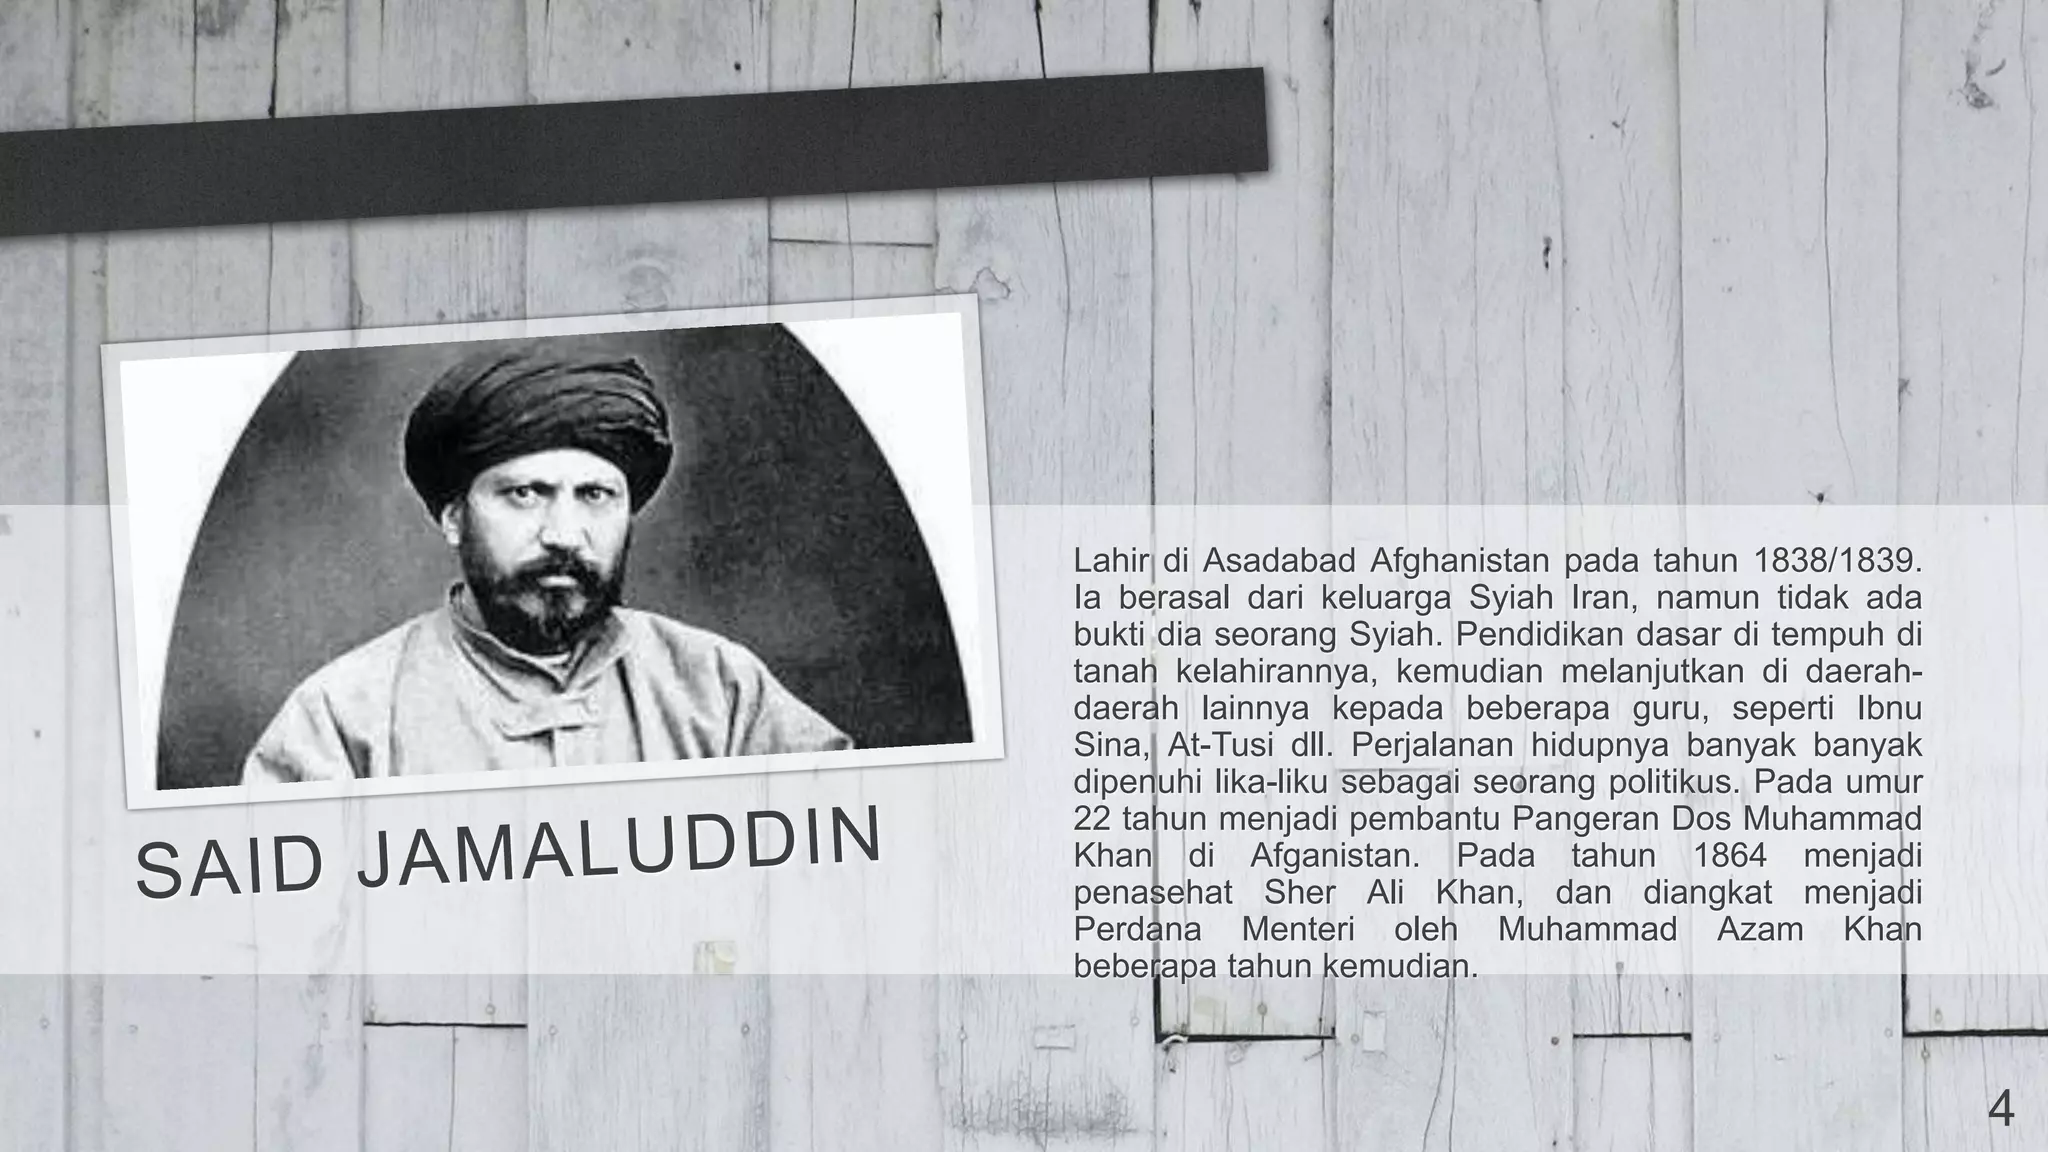 SAID JAMALUDDIN
Lahir di Asadabad Afghanistan pada tahun 1838/1839.
Ia berasal dari keluarga Syiah Iran, namun tidak ada
bukti dia seorang Syiah. Pendidikan dasar di tempuh di
tanah kelahirannya, kemudian melanjutkan di daerah-
daerah lainnya kepada beberapa guru, seperti Ibnu
Sina, At-Tusi dll. Perjalanan hidupnya banyak banyak
dipenuhi lika-liku sebagai seorang politikus. Pada umur
22 tahun menjadi pembantu Pangeran Dos Muhammad
Khan di Afganistan. Pada tahun 1864 menjadi
penasehat Sher Ali Khan, dan diangkat menjadi
Perdana Menteri oleh Muhammad Azam Khan
beberapa tahun kemudian.
4